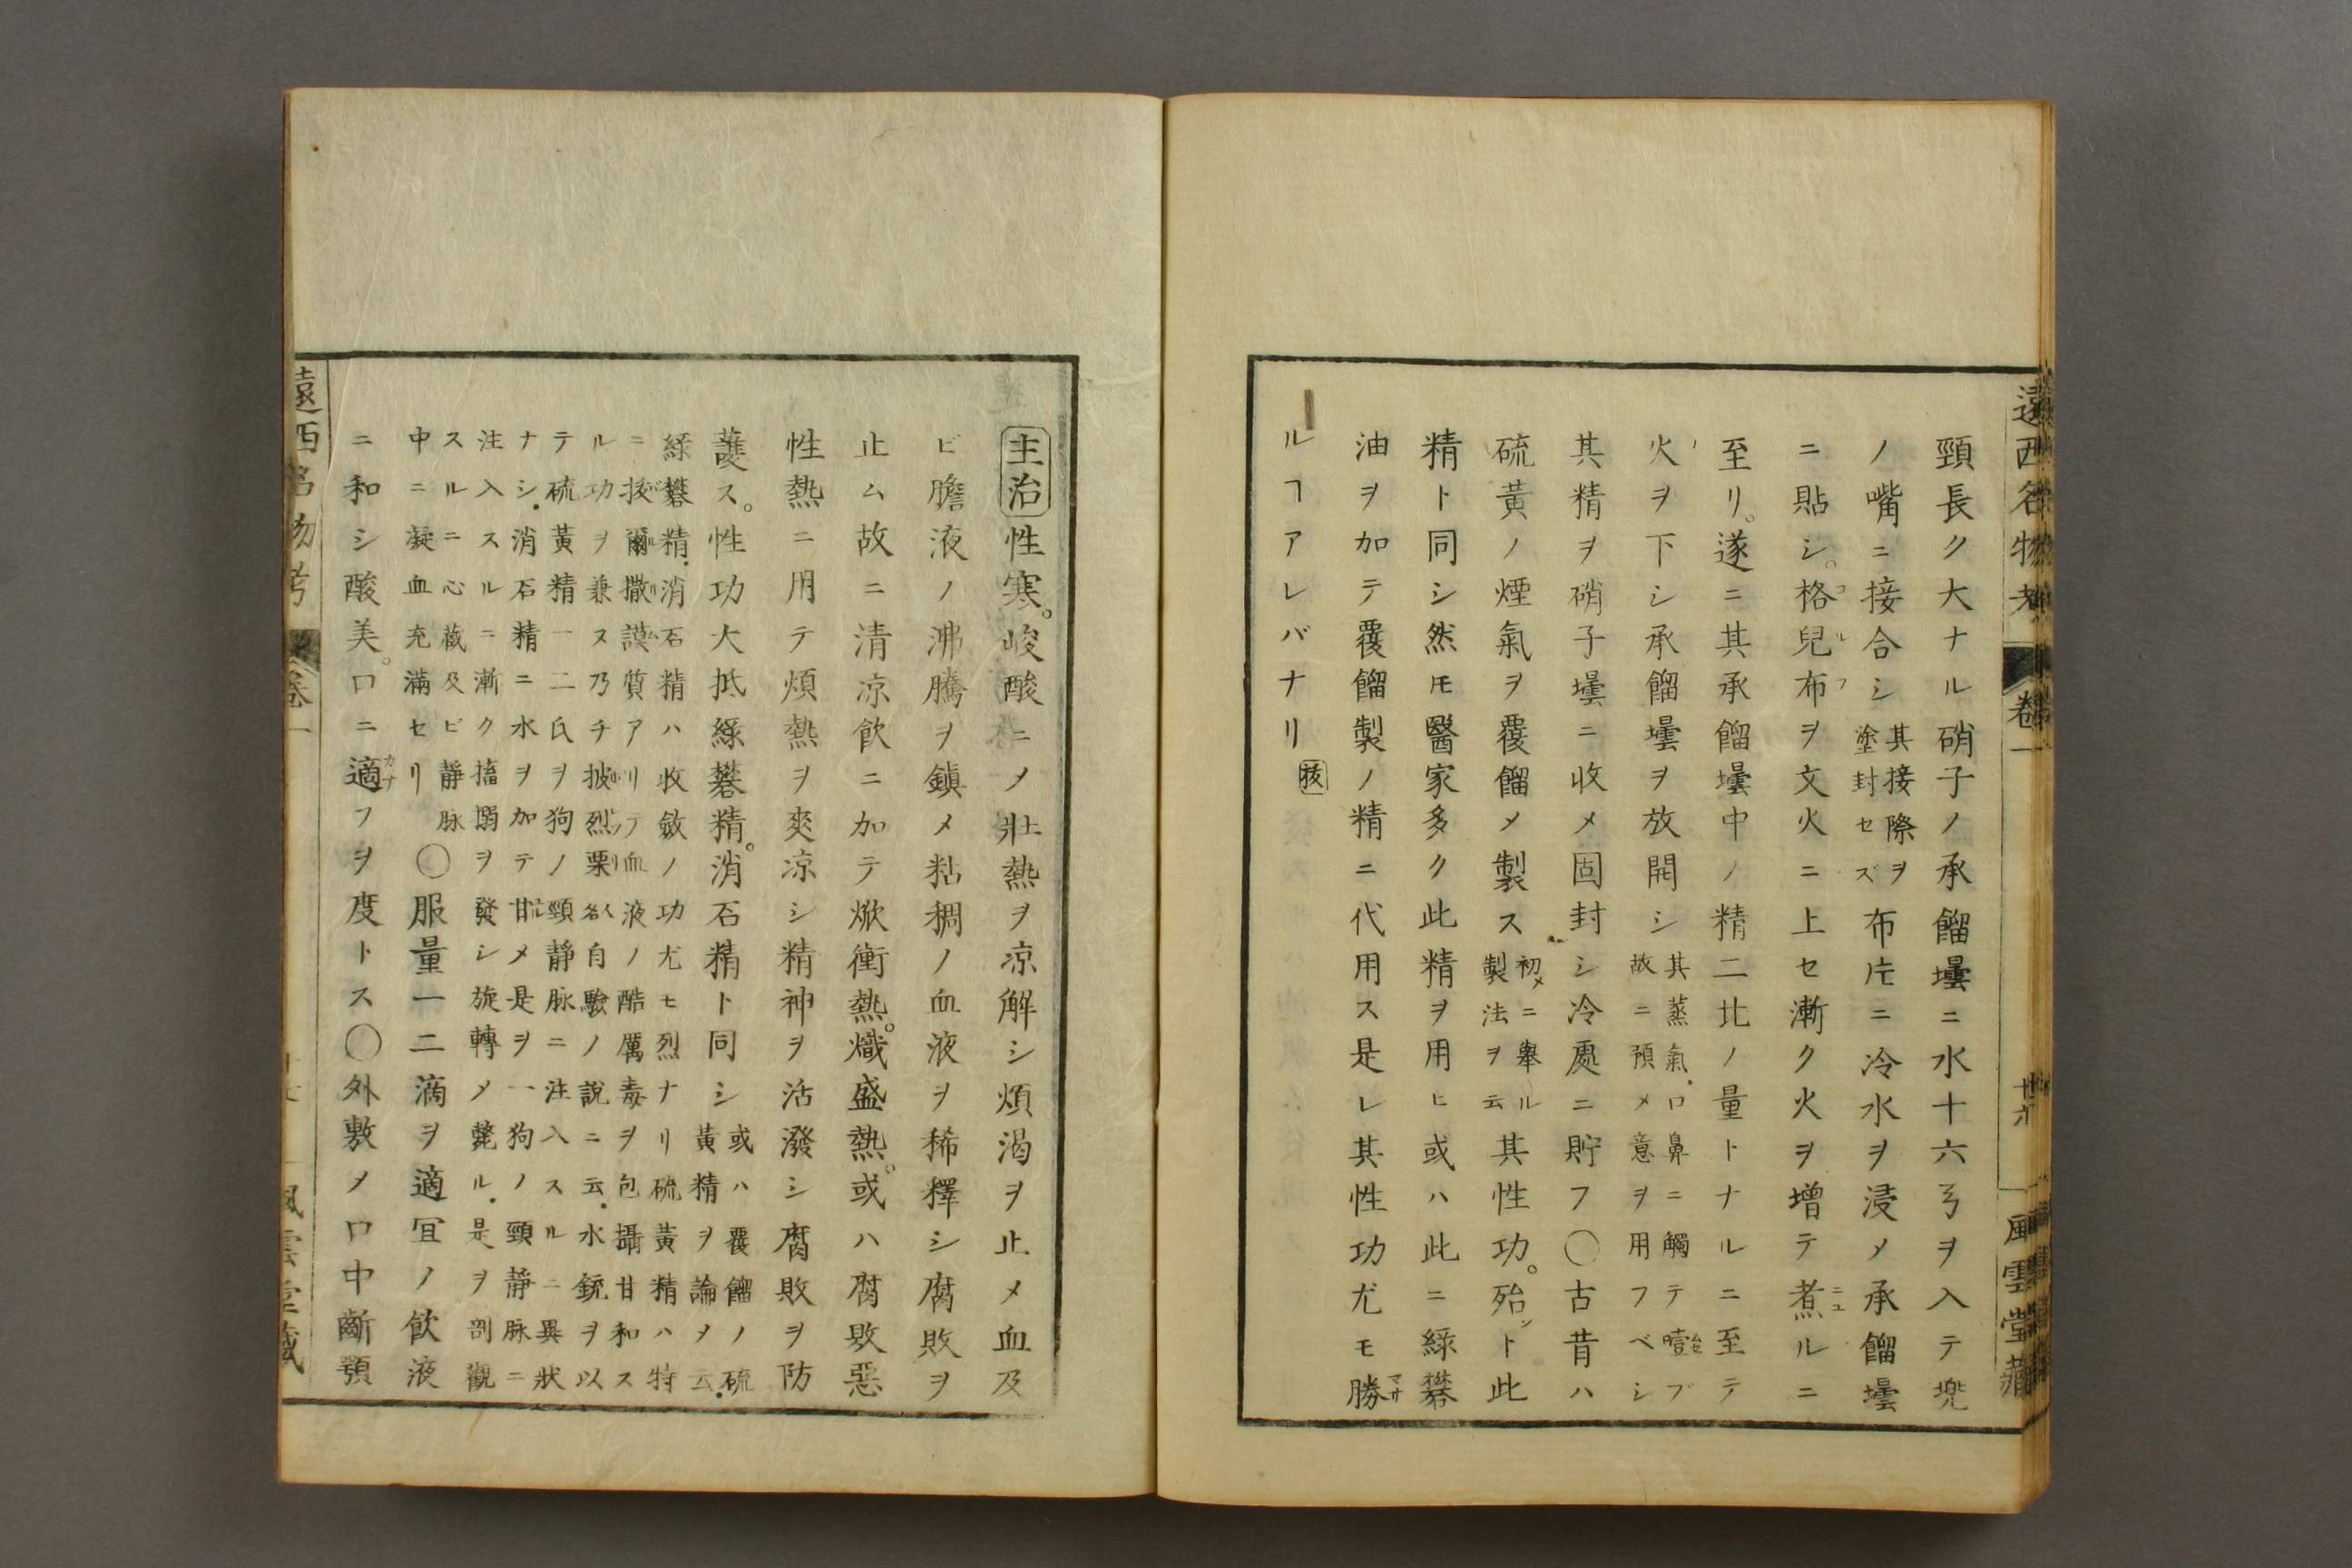 遠西名物考 卷一 廿六 風雲堂藏
頸長ク大ナル硝子ノ承餾壜ニ水十六弓ヲ入テ兜
ノ嘴ニ接合シ其接際ヲ塗封セズ布片ニ冷水ヲ浸メ承餾壜
ニ貼シ。格兒布ヲ文火ニ上セ漸ク火ヲ増テ煮ルニ
至リ。遂ニ其承餾壜中ノ精二比ノ量トナルニ至テ
火ヲ下シ承餾壜ヲ放開シ其蒸氣。口鼻ニ觸テ噎ブ故ニ預メ意ヲ用フベシ
其精ヲ硝子壜ニ收メ固封シ冷處ニ貯フ〇古昔ハ
硫黃ノ煙氣ヲ覆餾メ製ス初メニ擧ル製法ヲ云其性功。殆ント此
精ト同シ然モ醫家多ク此精ヲ用ヒ或ハ此ニ綠礬
油ヲ加テ覆餾製ノ精ニ代用ス是レ其性功尤モ勝
ルヿアレバナリ
主治性寒。峻酸ニメ壯熱ヲ凉解シ煩渴ヲ止メ血及
ビ膽液ノ沸騰ヲ鎭メ粘稠ノ血液ヲ稀釋シ腐敗ヲ
止ム故ニ清凉飲ニ加テ焮衝熱。熾盛熱。或ハ腐敗惡
性熱ニ用テ煩熱ヲ爽凉シ精神ヲ活潑シ腐敗ヲ防
護ス。性功大抵綠礬精。消石精ト同シ或ハ覆餾ノ硫黃精ヲ論メ云。
綠礬精。消石精ハ收斂ノ功尤モ烈ナリ硫黃精ハ特
ニ拔爾撒謨質アリテ血液ノ酷厲毒ヲ包攝甘和ス
ル功ヲ兼ヌ乃チ披烈栗名人自驗ノ說ニ云。水銃ヲ以
テ硫黃精一二氏ヲ狗ノ頸靜脉ニ注入スルニ異狀
ナシ。消石精ニ水ヲ加テ甘メ是ヲ一狗ノ頸靜脉ニ
注入スルニ漸ク搐搦ヲ發シ旋轉メ斃ル。是ヲ剖觀
スルニ心藏及ビ靜脉
中ニ凝血充滿セリ〇服量一二滴ヲ適宜ノ飲液
ニ和シ酸美。口ニ適フヲ度トス〇外敷メ口中齗顎
遠西名物考 卷一 風雲堂藏